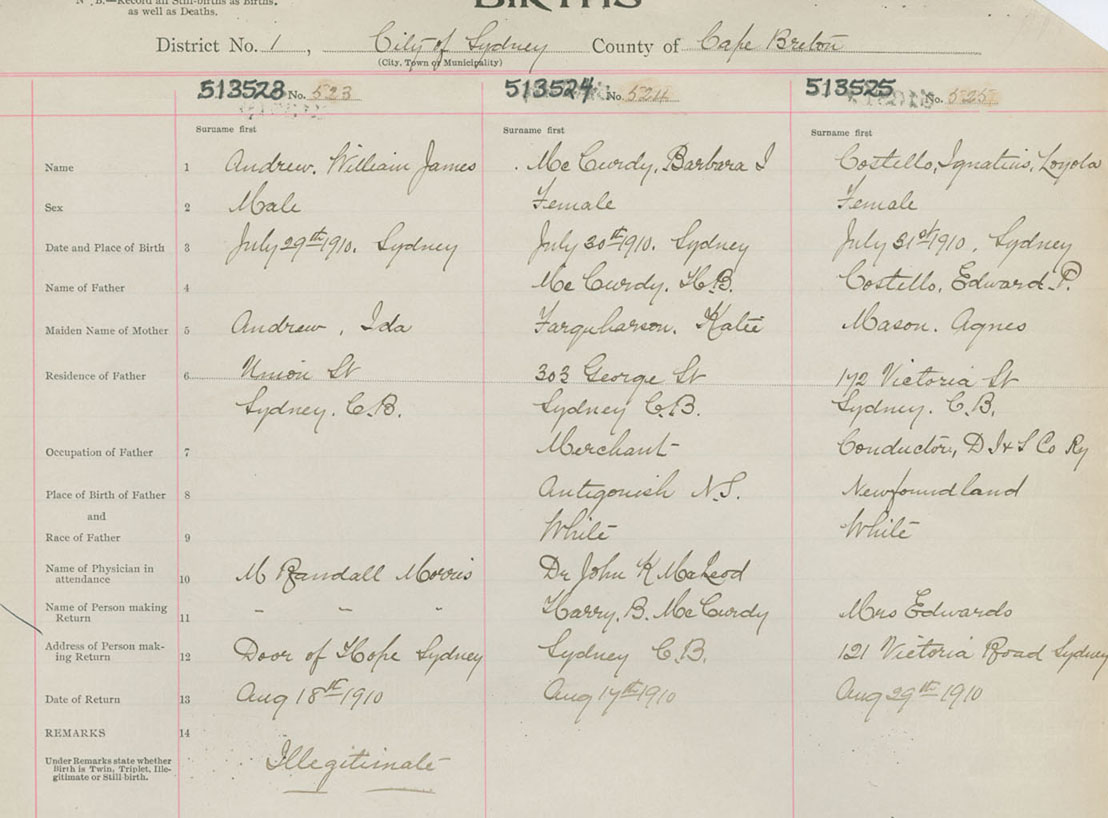 N. B.—Record all Still-births as Births,
as well as Deaths.
BIRTHS
District No. 1, City of Sydney County of Cape Breton
(City, Town or Municipality)
513523 No. 523 513524 No. 524 513525 No. 525
Surname first Surname first Surname first
Name 1 Andrew, William James McCurdy, Barbara I Costello, Ignatius, Loyola
Sex 2 Male Female Female
Date and Place of Birth 3 July 29th 1910. Sydney July 30th 1910. Sydney July 31st 1910, Sydney
Name of Father 4 McCurdy, H.B. Costello, Edward P.
Maiden Name of Mother 5 Andrew, Ida Farquharson, Katie Mason. Agnes
Residence of Father 6 Union St 303 George St 172 Victoria St
Sydney. C.B. Sydney C.B. Sydney. C.B.
Occupation of Father 7 Merchant Conductor, D I & S Co Ry
Place of Birth of Father 8 Antigonish N.S. Newfoundland
and
Race of Father 9 White White
Name of Physician in
attendance 10 M Randall Morris Dr John K McLeod
Name of Person making
Return 11 " " " Harry. B. McCurdy Mrs Edwards
Address of Person mak-
ing Return 12 Door of Hope Sydney Sydney C.B. 121 Victoria Road Sydney
Date of Return 13 Aug 18th 1910 Aug 17th 1910 Aug 29th 1910
REMARKS 14
Under Remarks state whether
Birth is Twin, Triplet, Ille-
gitimate or Still-birth.
Illegitimate